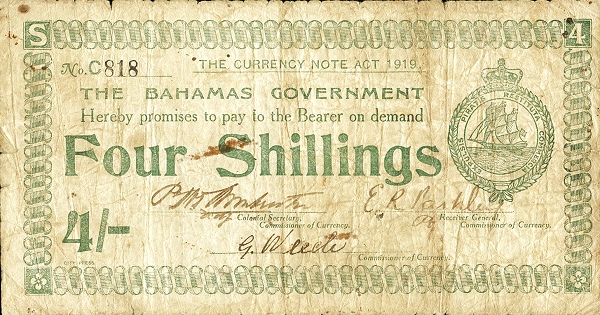 S 4
No. C818 THE CURRENCY NOTE ACT 1919.
THE BAHAMAS GOVERNMENT
Hereby promises to pay to the Bearer on demand
Four Shillings
EXPULSIS PIRATIS RESTITUTA COMMERCIA
4/-
Colonial Secretary, Receiver General,
Commissioner of Currency. Commissioner of Currency.
Commissioner of Currency.
CITY PRESS
S 4